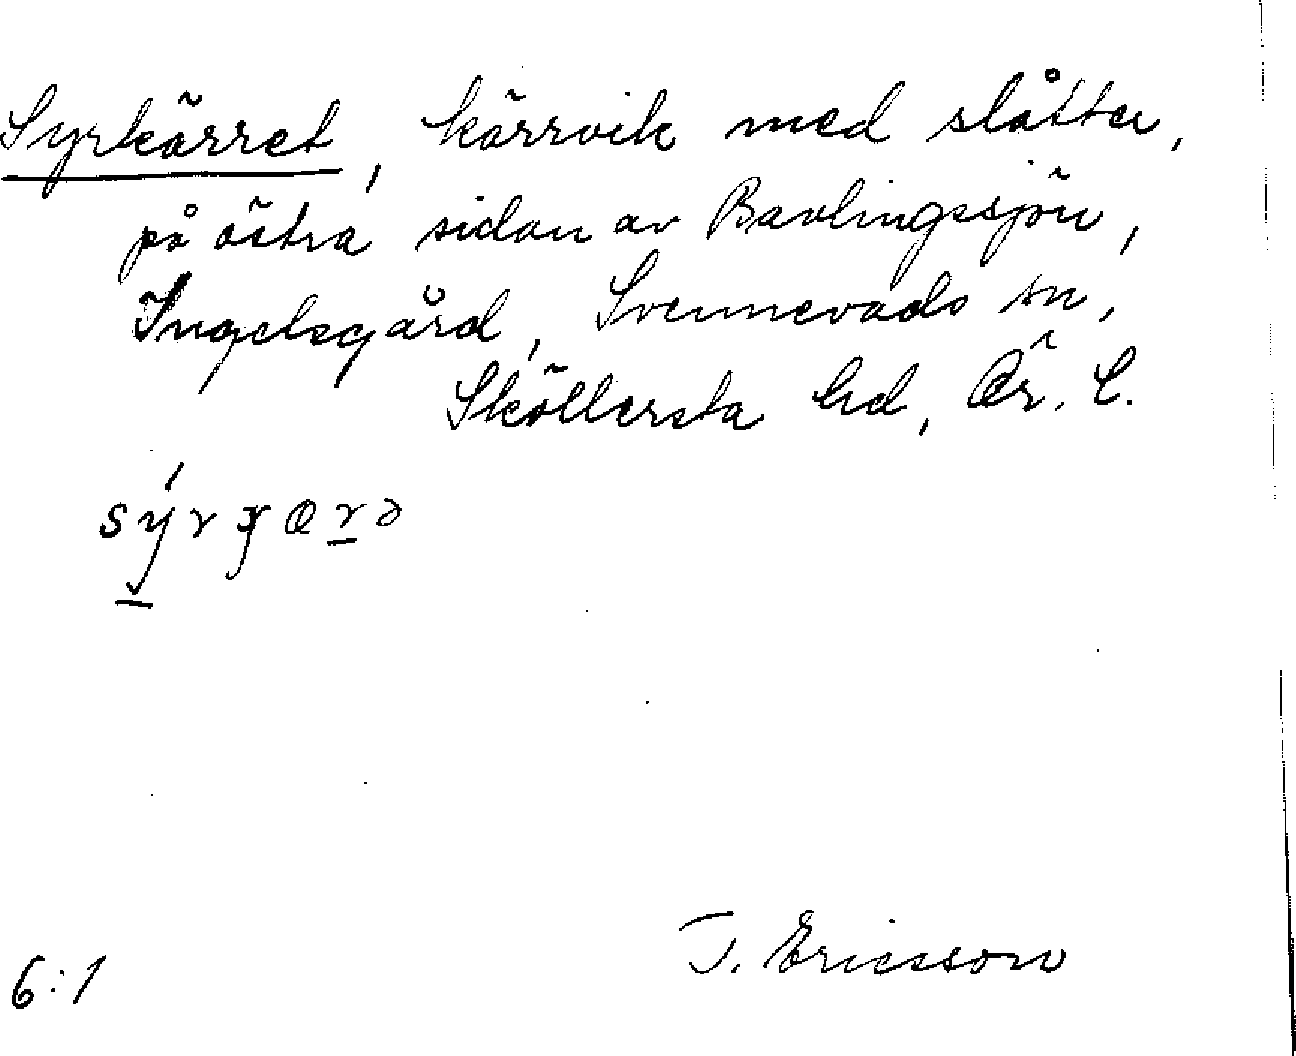 Syrkärret, kärrvik med slåtter,
på östra sidan av Bavlingssjön,
Ingelsgård, Svennevads sn,
Sköllersta hd, Ör. l.
6:1 T. Ericsson